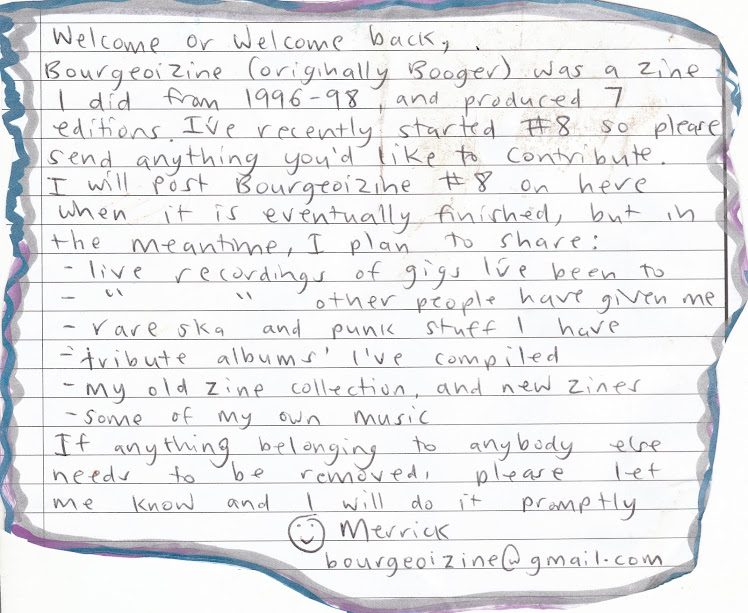 Welcome or Welcome back,
Bourgeoizine (originally Booger) was a zine
I did from 1996-98, and produced 7
editions. I've recently started #8 so please
send anything you'd like to contribute.
I will post Bourgeoizine #8 on here
when it is eventually finished, but in
the meantime, I plan to share:
- live recordings of gigs I've been to
- " " other people have given me
- rare ska and punk stuff I have
- 'tribute albums' I've compiled
- my old zine collection, and new zines
- some of my own music
If anything belonging to anybody else
needs to be removed, please let
me know and I will do it promptly
☺ Merrick
bourgeoizine@gmail.com